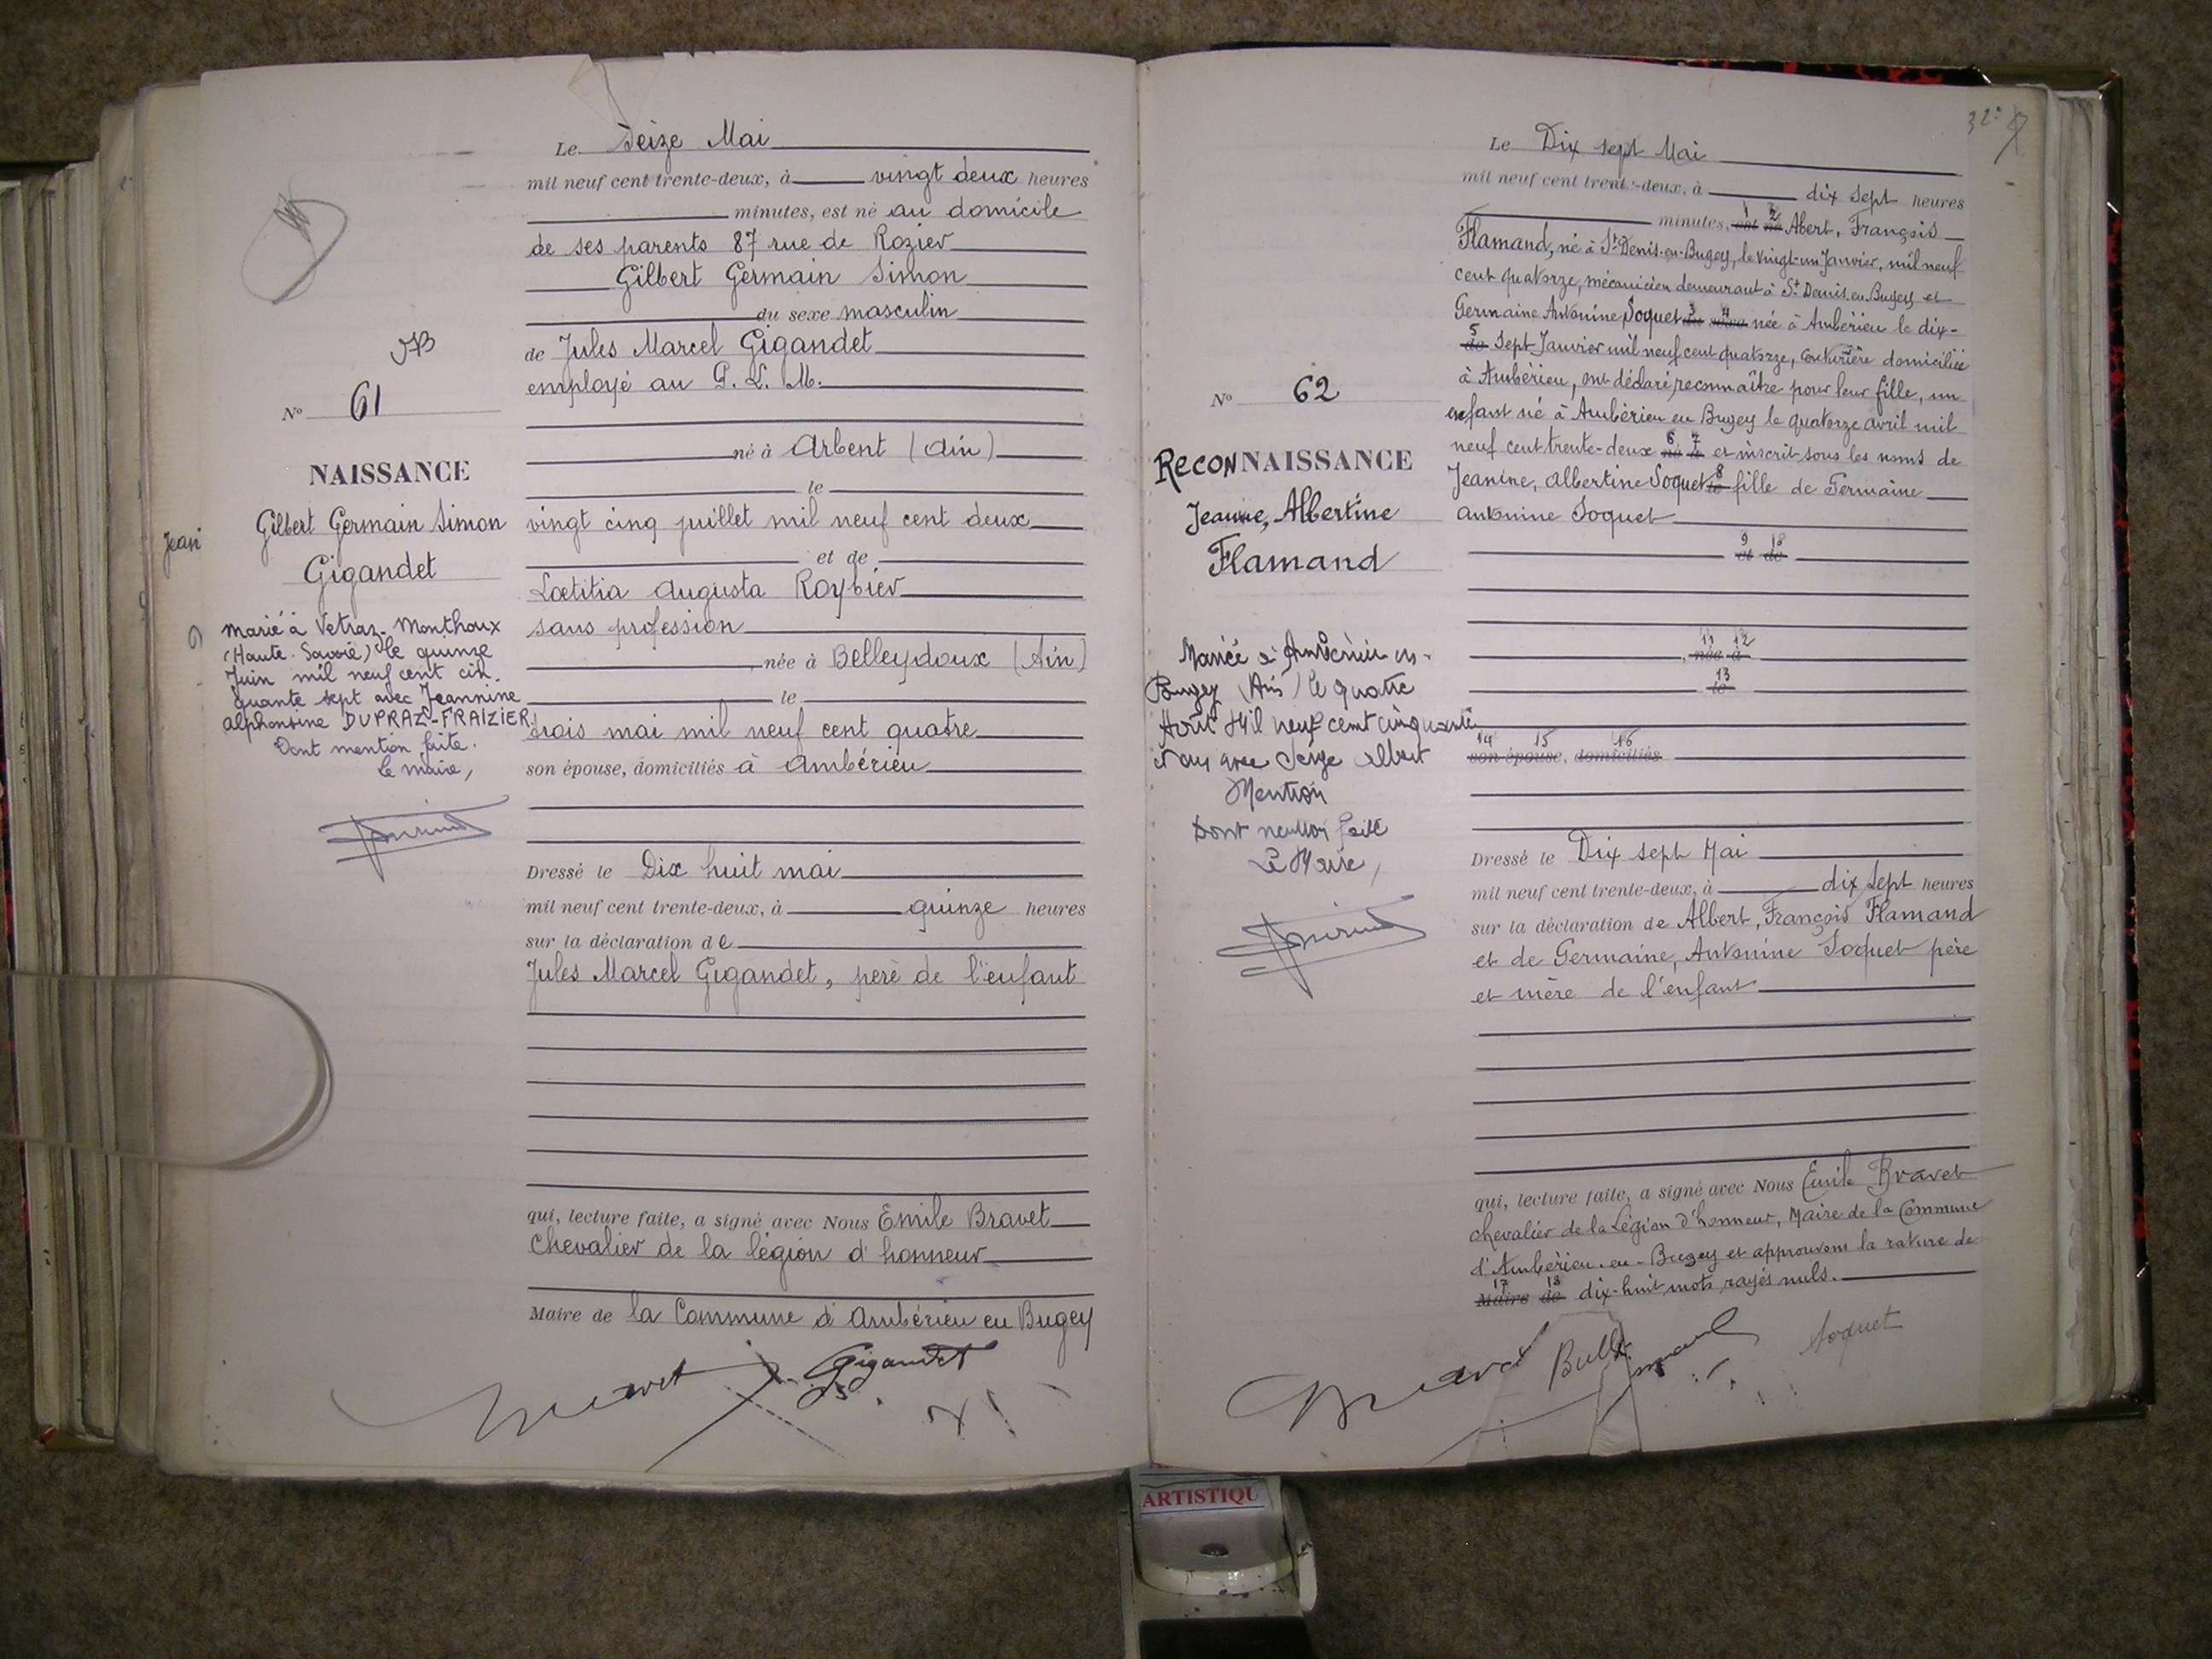 Le Seize Mai
mil neuf cent trente-deux, à vingt deux heures
minutes, est né au domicile
de ses parents 87 rue de Rozier
Gilbert Germain Simon
du sexe masculin
de Jules Marcel Gigandet
employé au P. L. M.
né à Arbent (Ain)
le
vingt cinq juillet mil neuf cent deux
et de
Lœtitia Augusta Roybier
sans profession
, née à Belleydoux (Ain)
le
trois mai mil neuf cent quatre
son épouse, domiciliés à Ambérieu
Dressé le Dix huit mai
mil neuf cent trente-deux, à quinze heures
sur la déclaration de
Jules Marcel Gigandet, père de l'enfant
qui, lecture faite, a signé avec Nous Emile Bravet
Chevalier de la légion d'honneur
Maire de la Commune d'Ambérieu en Bugey
Bravet Gigandet
N° 61
NAISSANCE
Gilbert Germain Simon
Gigandet
Jean
Marié à Vetraz-Monthoux
(Haute-Savoie) le quinze
Juin mil neuf cent cin-
quante sept avec Jeannine
Alphonsine DUPRAZ-FRAIZIER.
Dont mention faite.
Le maire,
32
Le Dix sept Mai
mil neuf cent trente-deux, à dix sept heures
minutes, est 1 né 2 Abert, François
Flamand, né à St Denis-en-Bugey, le vingt-un Janvier, mil neuf
cent quatorze, mécanicien demeurant à St Denis-en-Bugey et
Germaine Antonine Soquet du 3 sexe 4 née à Ambérieu le dix-
de 5 sept Janvier mil neuf cent quatorze, couturière domiciliée
à Ambérieu, ont déclaré reconnaître pour leur fille, un
enfant né à Ambérieu en Bugey le quatorze avril mil
neuf cent trente-deux né 6 à 7 et inscrit sous les noms de
Jeanine, Albertine Soquet le 8 fille de Germaine
Antonine Soquet
et 9 de 10
, née 11 à 12
le 13
14 15 16
son épouse, domiciliés
Dressé le Dix sept Mai
mil neuf cent trente-deux, à dix sept heures
sur la déclaration de Albert, François Flamand
et de Germaine, Antonine Soquet père
et mère de l'enfant
qui, lecture faite, a signé avec Nous Emile Bravet
chevalier de la Légion d'honneur, Maire de la Commune
d'Ambérieu-en-Bugey et approuvons la rature de
Maire 17 de 18 dix-huit mots rayés nuls.
Bravet Soquet
N° 62
RECONNAISSANCE
Jeanine, Albertine
Flamand
Mariée à Ambérieu en-
Bugey (Ain) le quatre
Août Mil neuf cent cinquante
avec Serge Albert
Mention
Dont mention faite
Le Maire,
ARTISTIQU